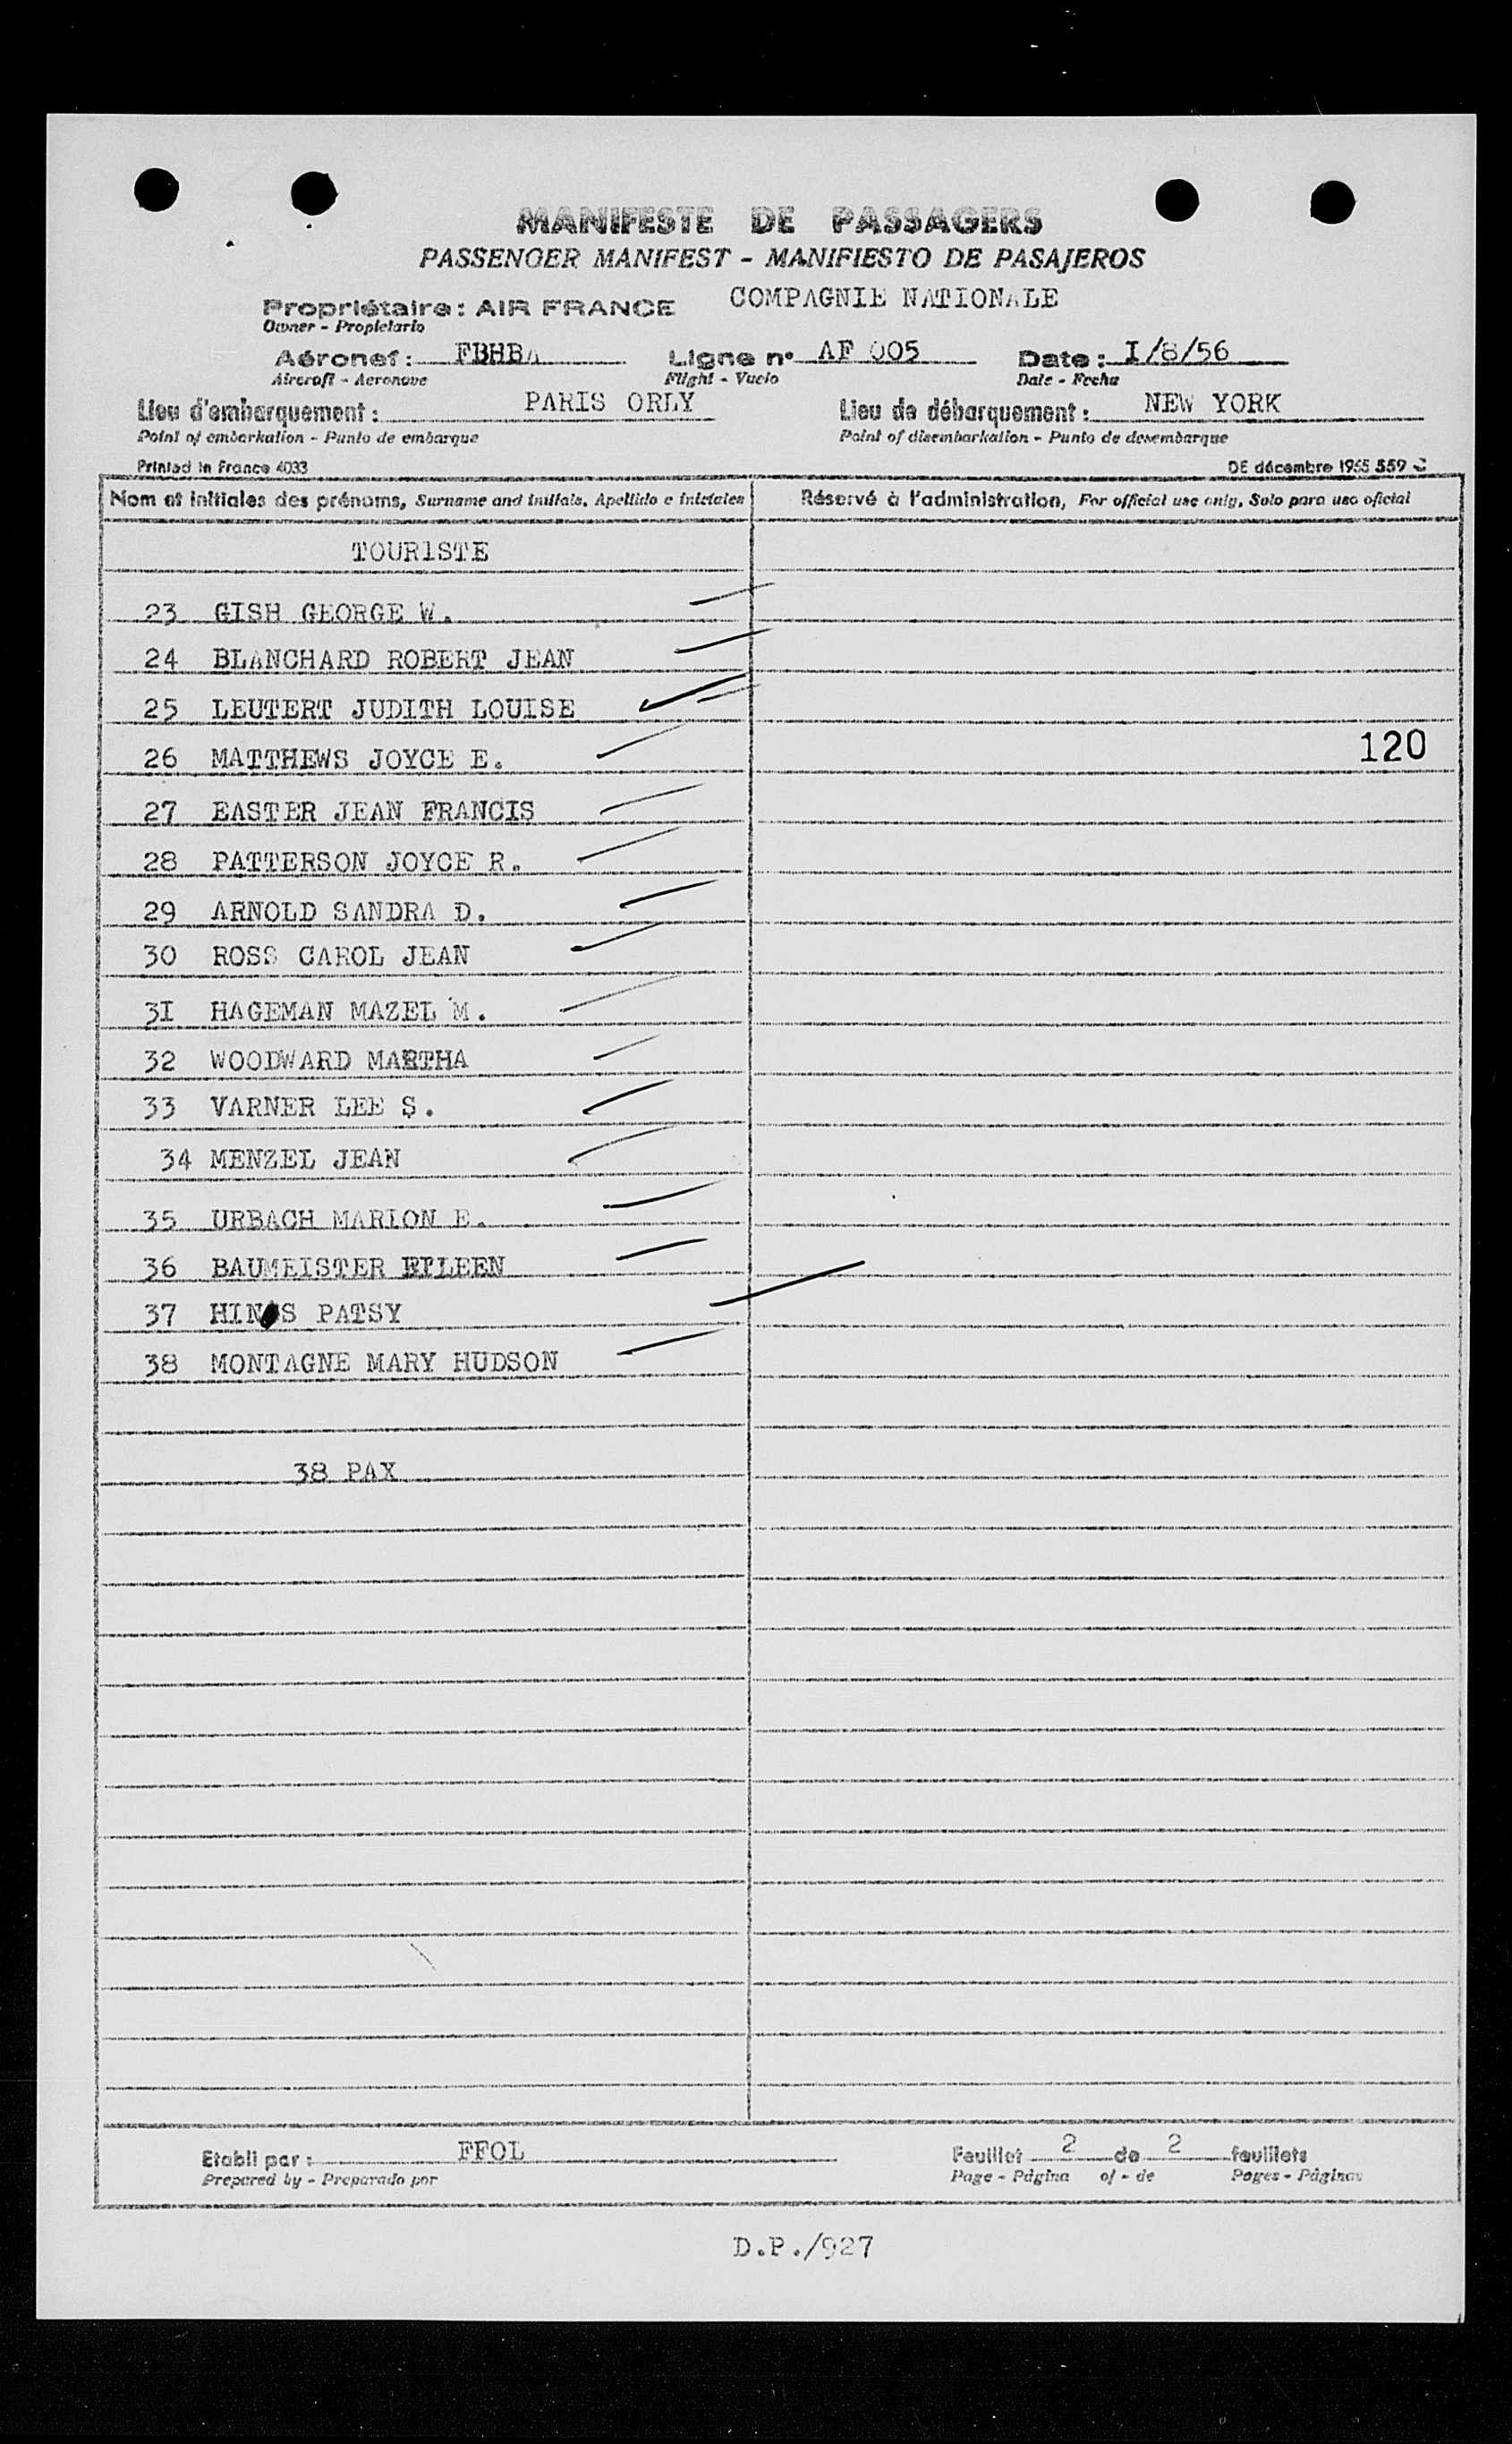 MANIFESTE DE PASSAGERS
PASSENGER MANIFEST - MANIFIESTO DE PASAJEROS
Propriétaire : AIR FRANCE COMPAGNIE NATIONALE
Owner - Propietario
Aéronef : FBHBA Ligne n° AF 005 Date : I/8/56
Aircraft - Aeronave Flight - Vuelo Date - Fecha
Lieu d'embarquement : PARIS ORLY Lieu de débarquement : NEW YORK
Point of embarkation - Punto de embarque Point of disembarkation - Punto de desembarque
Printed in France 4033 DE décembre 1955 559
Nom et initiales des prénoms, Surname and initials, Apellido e iniciales Réservé à l'administration, For official use only, Solo para uso oficial
TOURISTE
23 GISH GEORGE W.
24 BLANCHARD ROBERT JEAN
25 LEUTERT JUDITH LOUISE
26 MATTHEWS JOYCE E. 120
27 EASTER JEAN FRANCIS
28 PATTERSON JOYCE R.
29 ARNOLD SANDRA D.
30 ROSS CAROL JEAN
3I HAGEMAN MAZEL M.
32 WOODWARD MARTHA
33 VARNER LEE S.
34 MENZEL JEAN
35 URBACH MARION E.
36 BAUMEISTER EILEEN
37 PATSY
38 MONTAGNE MARY HUDSON
38 PAX
Etabli par : FFOL Feuillet 2 de 2 feuillets
Prepared by - Preparado por Page - Página of - de Pages - Páginas
D.P./927